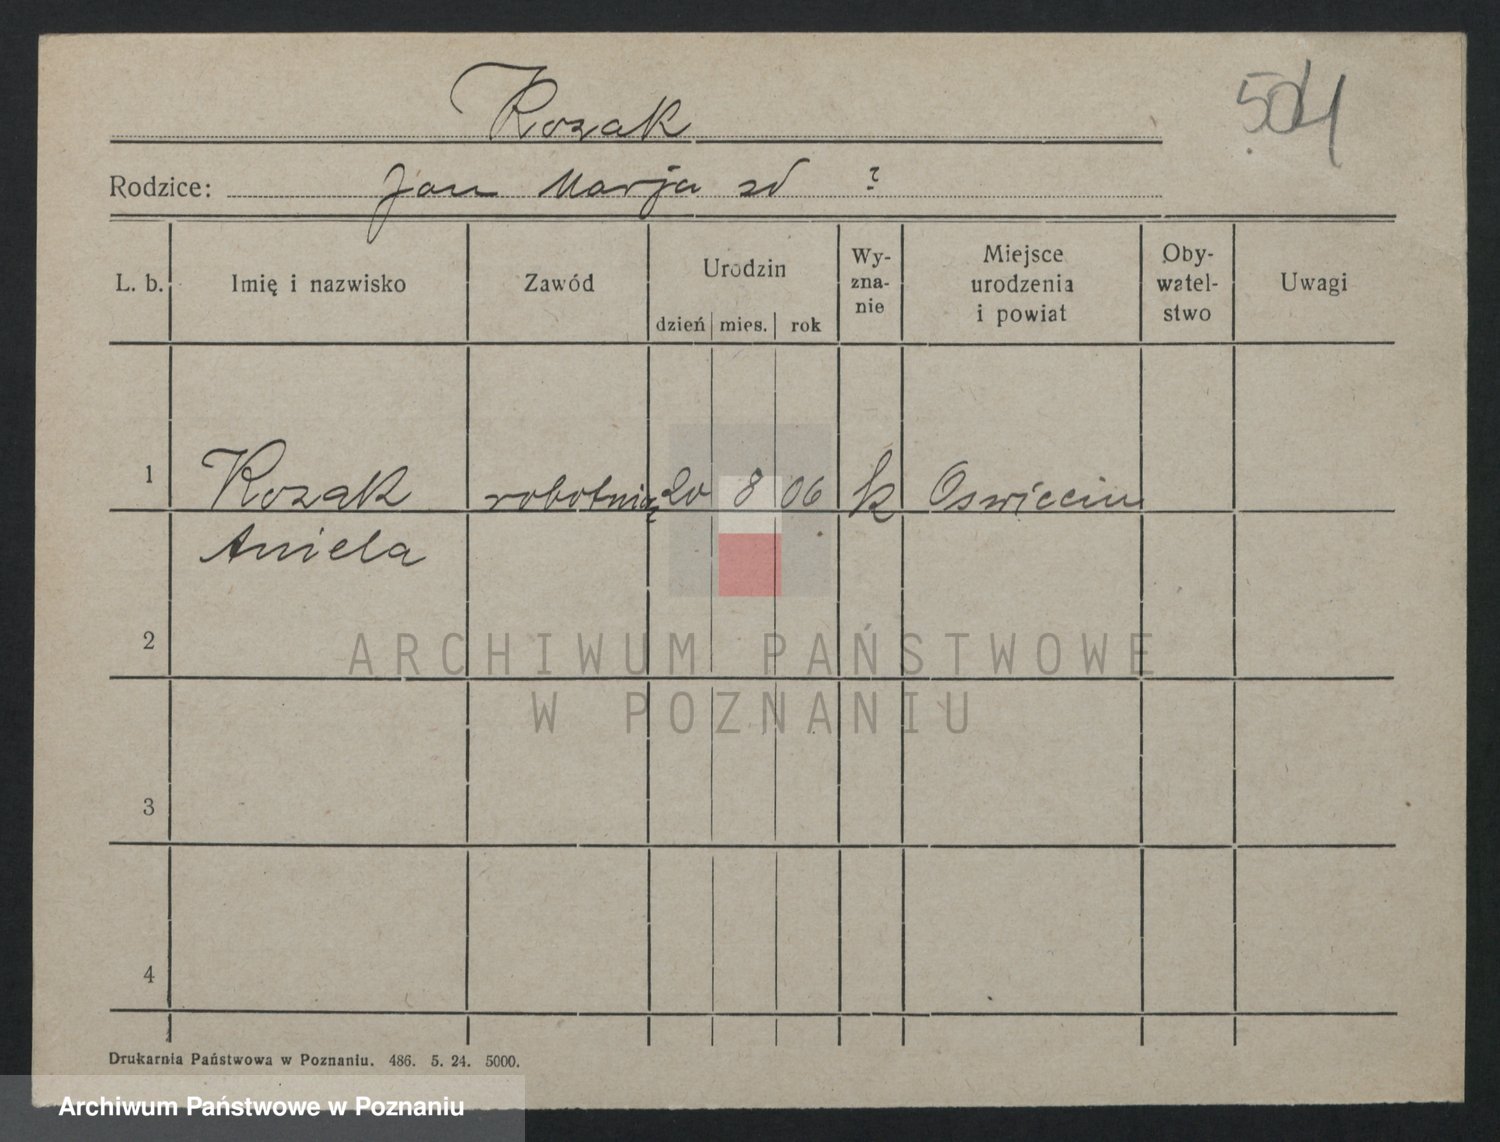 Kozak
504
Rodzice: Jan Marja zd ?
L. b. Imię i nazwisko Zawód Urodzin dzień mies. rok Wy-zna-nie Miejsce urodzenia i powiat Oby-watel-stwo Uwagi
1 Kozak robotnicą 20 8 06 k Oswięcim
Aniela
2
ARCHIWUM PAŃSTWOWE
W POZNANIU
3
4
Drukarnia Państwowa w Poznaniu. 486. 5. 24. 5000.
Archiwum Państwowe w Poznaniu